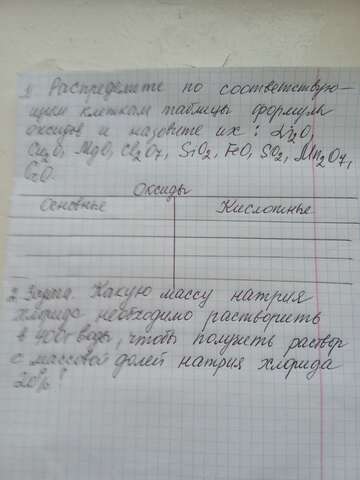 1) Распределите по соответствую-
щим клеткам таблицы формулы
оксидов и назовите их: Li2O,
Cu2O, MgO, Cl2O7, SiO2, FeO, SO2, Mn2O7,
Оксиды
Основные Кислотные
2. Задача. Какую массу натрия
хлорида необходимо растворить
в 400г воды, чтобы получить раствор
с массовой долей натрия хлорида
20%?